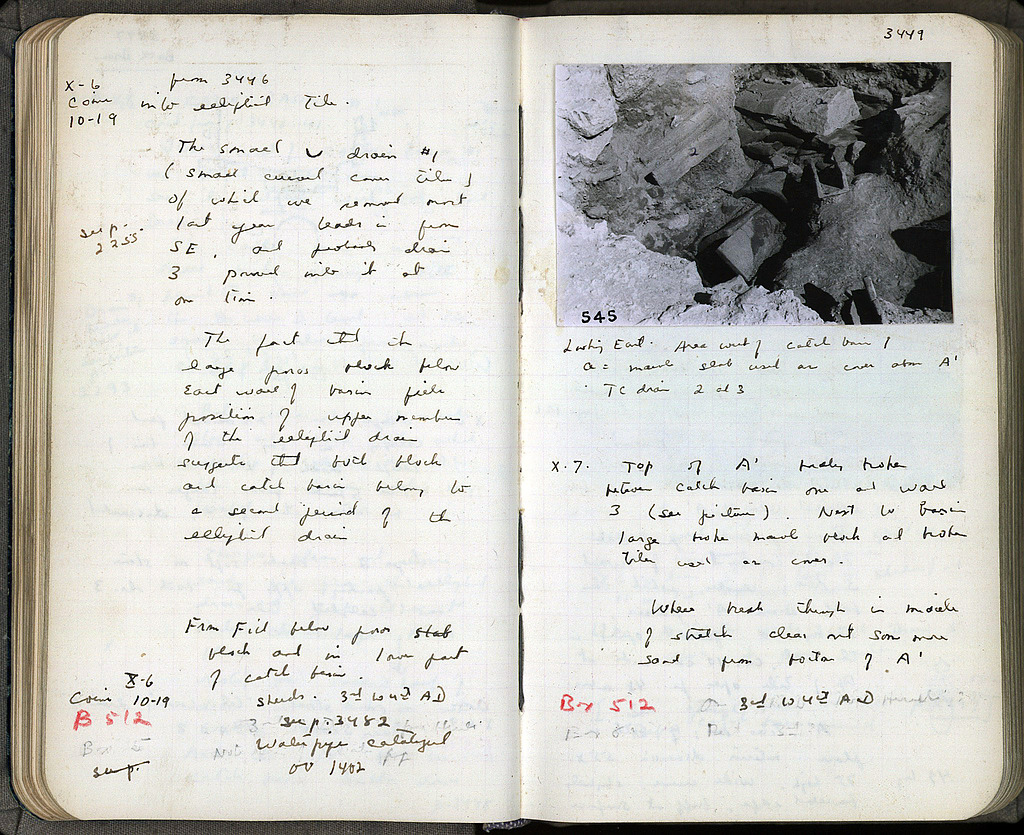 X-6
Coins
10-19
from 3446
into elliptical Tile.
The small U drain #1
(small curved cover tile)
of which we removed most
last year leads in from
SE, and probably drain
3 poured into it at
one time.
see p.
2255
The fact that the
large poros block below
East wall of basin fills
position of upper member
of the elliptical drain
suggests that both block
and catch basin belong to
a second period of the
elliptical drain
From Fill below poros slab
block and in lower part
of catch basin.
X-6
Coins 10-19
sherds. 3rd to 4th AD
B 512
see p. 3482
Water pipe catalogued
Not
see p.
OV 1402
3449
2
545
Looking East. Area west of catch basin 1
a = marble slab used as cover over A'
TC drain 2 and 3
X-7. Top of A' broken
between catch basin one and wall
3 (see picture). Next to basin
large broken marble block and broken
tiles used as cover.
Where break through in middle
of stretch clear out some more
sand from bottom of A'
Box 512
3rd to 4th AD